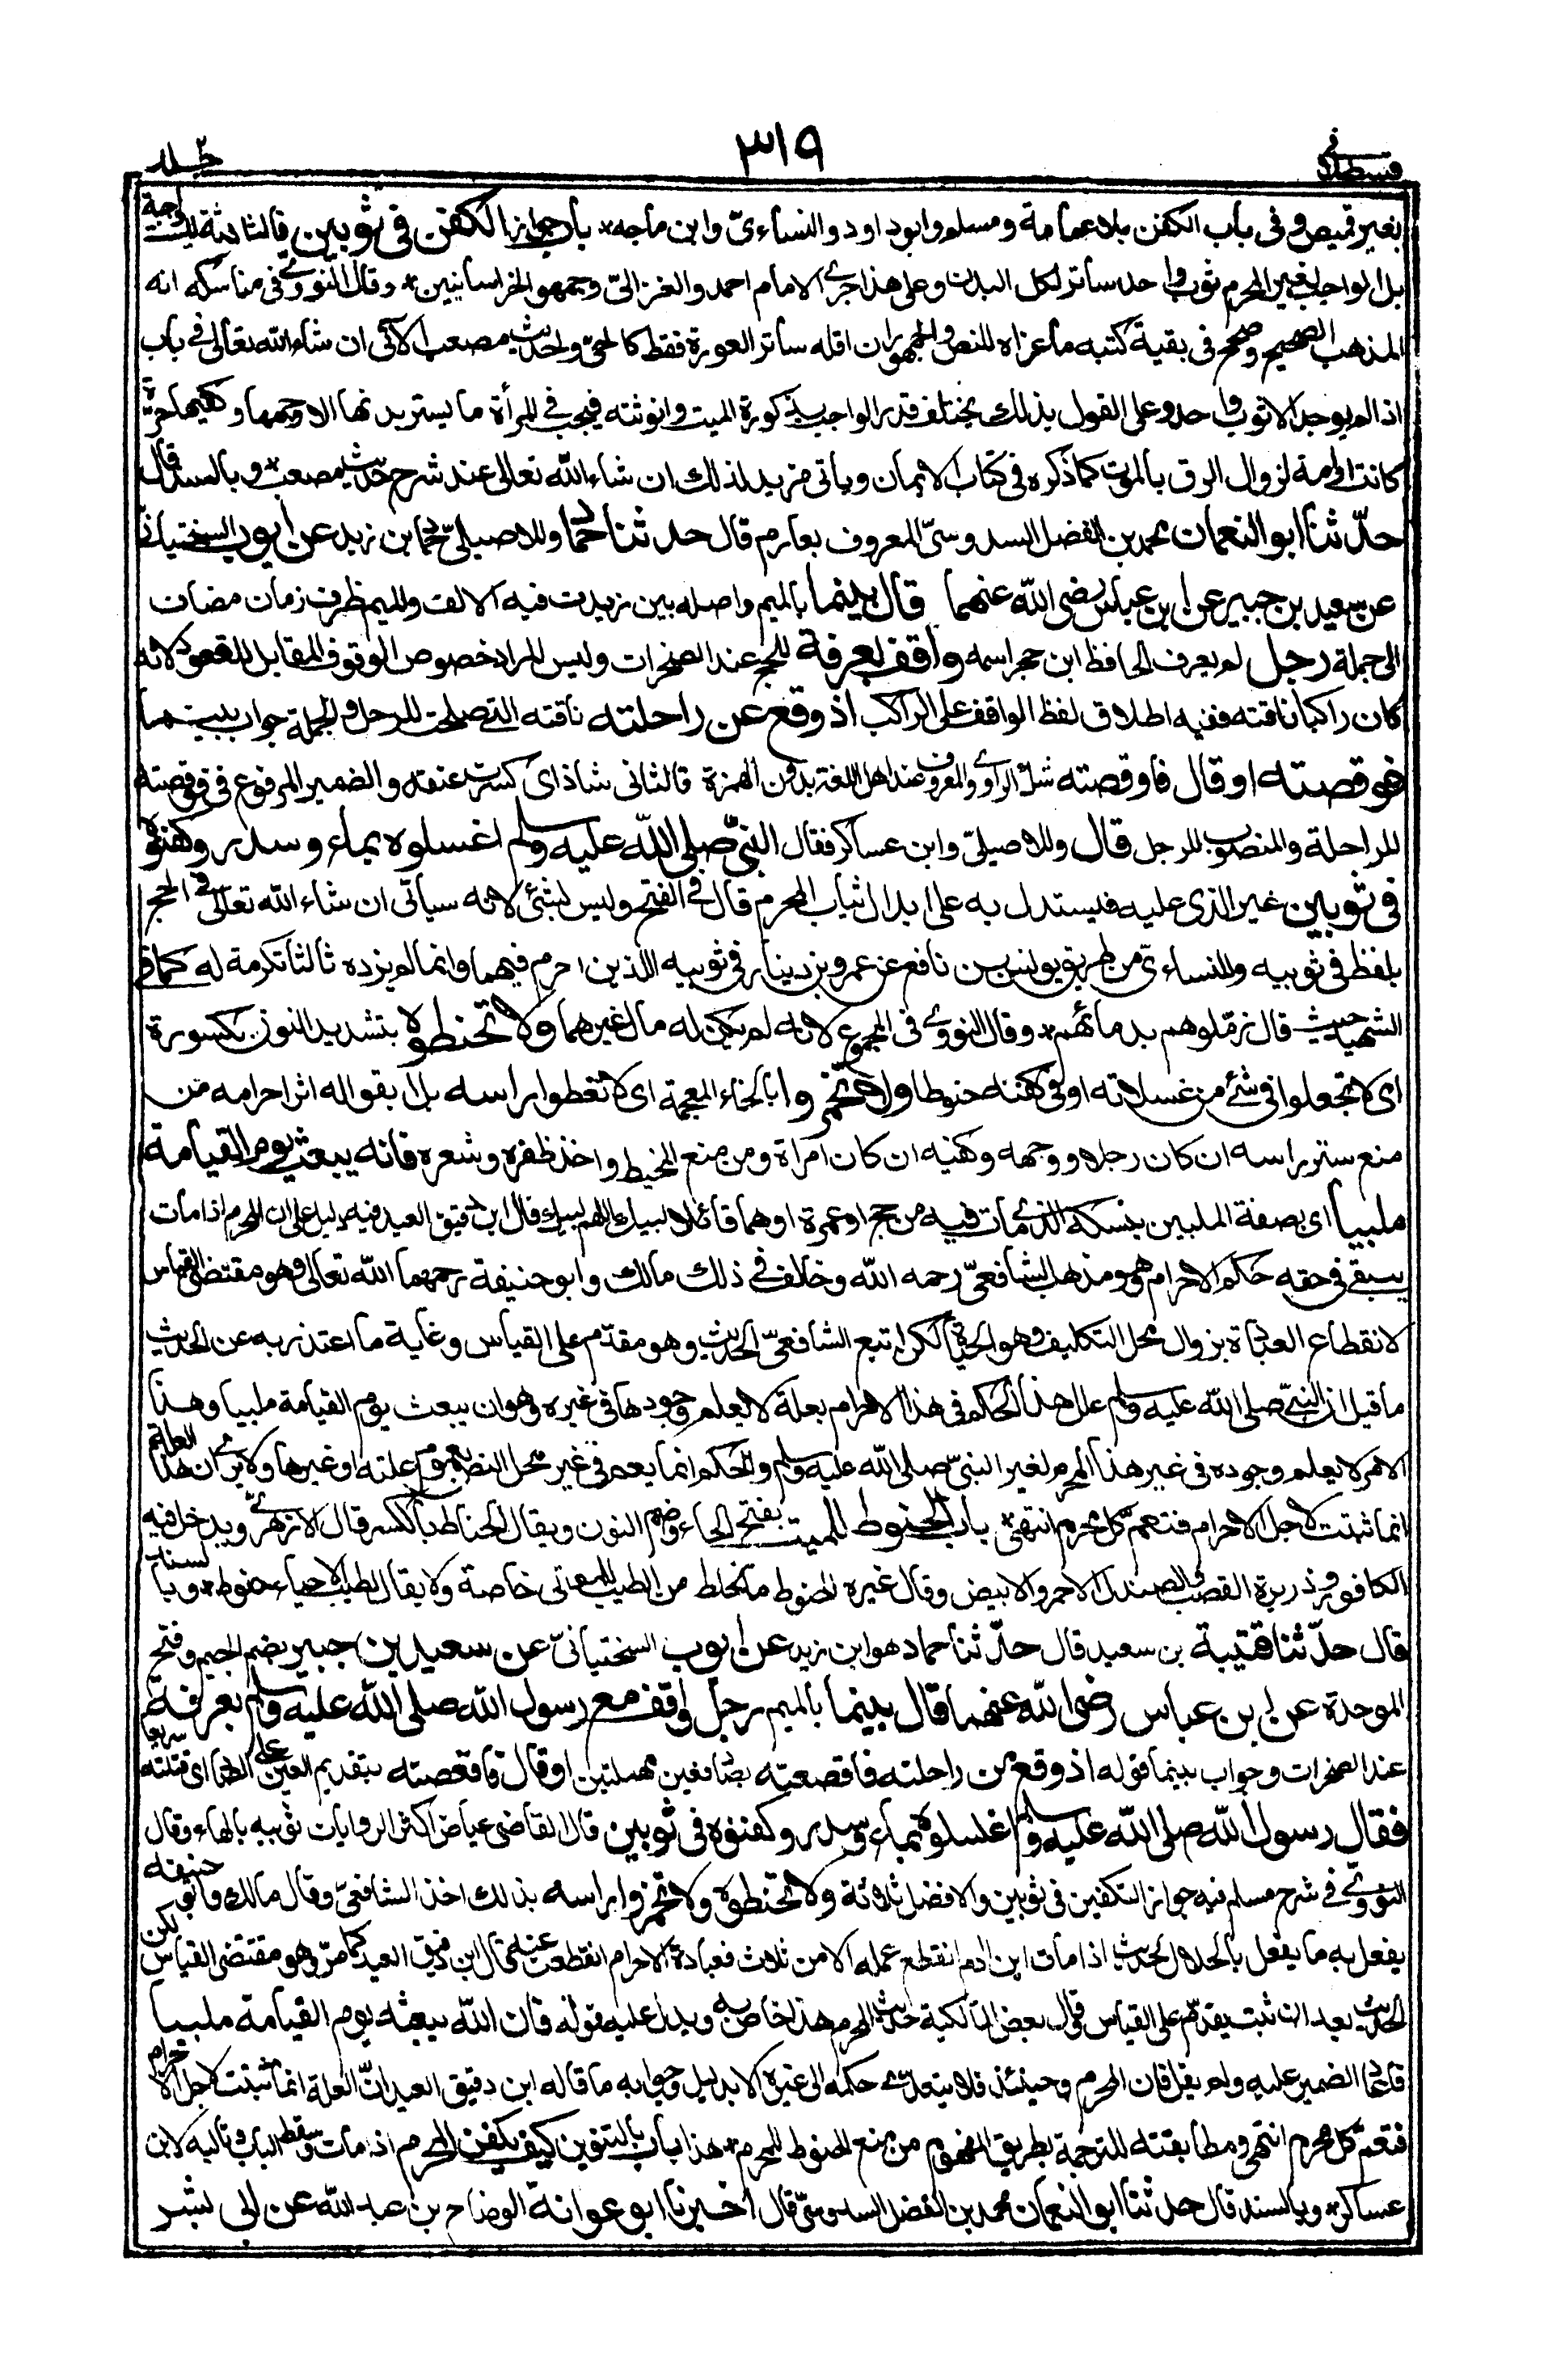 قسطلانی
٣١٩
جلد ٢
بغير قميص وفى باب الكفن بلا عمامة ومسلم وابوداود والنساءىّ وابن ماجه٭ باب جواز الكفن فى ثوبين فالثالثة ليست واجبة
بل الواجب لغير المحرم ثوب واحد ساتر لكل البدن وعلى هذا جرى الامام احمد والغزالىّ وجمهور الخراسانيين٭ وقال النووىّ فى مناسكه انه
المذهب الصحيح وصحح فى بقية كتبه ما عزاه للنص والجمهور ان اقله ساتر العورة فقط كالحىّ ولحديث مصعب الآتى ان شاء الله تعالى فى باب
اذا لم يوجد الا ثوب واحد وعلى القول بذلك يختلف قدر الواجب بذكورة الميت وانوثته فيجب فى المرأة ما يستر بدنها الا وجهها وكفيها حرّة
كانت او امة لزوال الرق بالموت كما ذكره فى كتاب الايمان وياتى مزيد لذلك ان شاء الله تعالى عند شرح حديث مصعب٭ وبالسند قال
حدّثنا ابو النعمان محمد بن الفضل السدوسىّ المعروف بعارم قال حدثنا حماد وللاصيلىّ حماد بن زيد عن ايوب السختيانىّ
عن سعيد بن جبير عن ابن عباس رضى الله عنهما قال بينما بالميم واصله بين زيدت فيه الالف والميم ظرف زمان مضاف
الى جملة رجل لم يعرف الحافظ ابن حجر اسمه واقف بعرفة للحج عند الصخرات وليس المراد خصوص الوقوف المقابل للقعود لانه
كان راكبا ناقته ففيه اطلاق لفظ الواقف على الراكب اذ وقع عن راحلته ناقته التى صلحت للرحل والجملة جواب بينما
فوقصته او قال فاوقصته شك الراوى والمعروف عند اهل اللغة بدون الهمزة فالثانى شاذ اى كسرت عنقه والضمير المرفوع فى فوقصته
للراحلة والمنصوب للرجل قال وللاصيلىّ وابن عساكر فقال النبىّ صلى الله عليه وسلم اغسلوه بماء وسدر وكفنوه
فى ثوبين غير الذى عليه فيستدل به على ابدال ثياب المحرم قال فى الفتح وليس بشئ لانه سيأتى ان شاء الله تعالى فى الحج
بلفظ فى ثوبيه وللنساءى من طريق يونس بن نافع عن عمرو بن دينار فى ثوبيه اللذين احرم فيهما وانما لم يزده ثالثا تكرمة له كما فى
الشهيد حيث قال زملوهم بدمائهم٭ وقال النووىّ فى المجموع لانه لم يكن له مال غيرهما ولا تحنطوه بتشديد النون المكسورة
اى لا تجعلوا فى شئ من غسلاته او فى كفنه حنوطا ولا تخمروا بالخاء المعجمة اى لا تغطوا راسه بل ابقوا له اثر احرامه من
منع ستر راسه ان كان رجلا ووجهه وكفيه ان كان امراة ومن منع المخيط واخذ ظفره وشعره فانه يبعث يوم القيامة
ملبيا اى بصفة الملبين بنسكه الذى مات فيه من حج او عمرة او هما قائلا لبيك اللهم لبيك قال ابن دقيق العيد فيه دليل على ان المحرم اذا مات
يبقى فى حقه حكم الاحرام وهو مذهب الشافعىّ رحمه الله وخالف فى ذلك مالك وابو حنيفة رحمهما الله تعالى وهو مقتضى القياس
لانقطاع العبادة بزوال محل التكليف وهو الحياة لكن اتبع الشافعىّ الحديث وهو مقدّم على القياس وغاية ما اعتذر به عن الحديث
ما قيل ان النبىّ صلى الله عليه وسلم علل هذا الحكم فى هذا الاحرام بعلة لا يعلم وجودها فى غيره وهو ان يبعث يوم القيامة ملبيا وهذا
الامر لا يعلم وجوده فى غير هذا المحرم لغير النبىّ صلى الله عليه وسلم والحكم انما يعم فى غير محل النص بعموم علته او غيرها ولا يرى ان هذا العلة
انما ثبتت لاجل الاحرام فتعم كل محرم انتهى٭ باب الحنوط للميت بفتح الحاء وضم النون ويقال الحناط بالكسر قال الازهرىّ ويدخل فيه
الكافور وذريرة القصب والصندل الاحمر والابيض وقال غيره الحنوط ما يخلط من الطيب للموتى خاصة ولا يقال لطيب الاحياء حنوط٭ وبالسند
قال حدّثنا قتيبة بن سعيد قال حدّثنا حماد هو ابن زيد عن ايوب السختيانىّ عن سعيد بن جبير بضم الجيم وفتح
الموحدة عن ابن عباس رضى الله عنهما قال بينما بالميم رجل واقف مع رسول الله صلى الله عليه وسلم بعرفة
عند الصخرات وجواب بينما قوله اذ وقع من راحلته فاقصعته بصاد فعين مهملتين او قال فاقعصته بتقديم العين على الصاد اى قتلته سريعا
فقال رسول الله صلى الله عليه وسلم اغسلوه بماء وسدر وكفنوه فى ثوبين قال القاضى عياض اكثر الروايات ثوبيه بالهاء وقال
النووىّ فى شرح مسلم فيه جواز التكفين فى ثوبين والافضل ثلاثة ولا تحنطوه ولا تخمروا راسه بذلك اخذ الشافعىّ وقال مالك وابو حنيفه
يفعل به ما يفعل بالحلال لحديث اذا مات ابن ادم انقطع عمله الا من ثلاث فعبادة الاحرام انقطعت عنه قال ابن دقيق العيد كما مرّ وهو مقتضى القياس لكن
الحديث بعد ان ثبت يقدّم على القياس وقال بعض المالكية حديث المحرم هذا خاص به ويدل عليه قوله فان الله يبعثه يوم القيامة ملبيا
فاعاد الضمير عليه ولم يقل فان المحرم وحينئذ فلا يتعدّى حكمه الى غيره الا بدليل وجوابه ما قاله ابن دقيق العيد انّ العلة انما ثبتت لاجل الاحرام
فتعم كل محرم انتهى ومطابقته للترجمة بطريق المفهوم من منع الحنوط للمحرم٭ هذا باب بالتنوين كيف يكفن المحرم اذا مات وسقط الباب وتاليه لابن
عساكر٭ وبالسند قال حدثنا ابو النعمان محمد بن الفضل السدوسىّ قال اخبرنا ابو عوانة الوضاح بن عبد الله عن ابى بشر